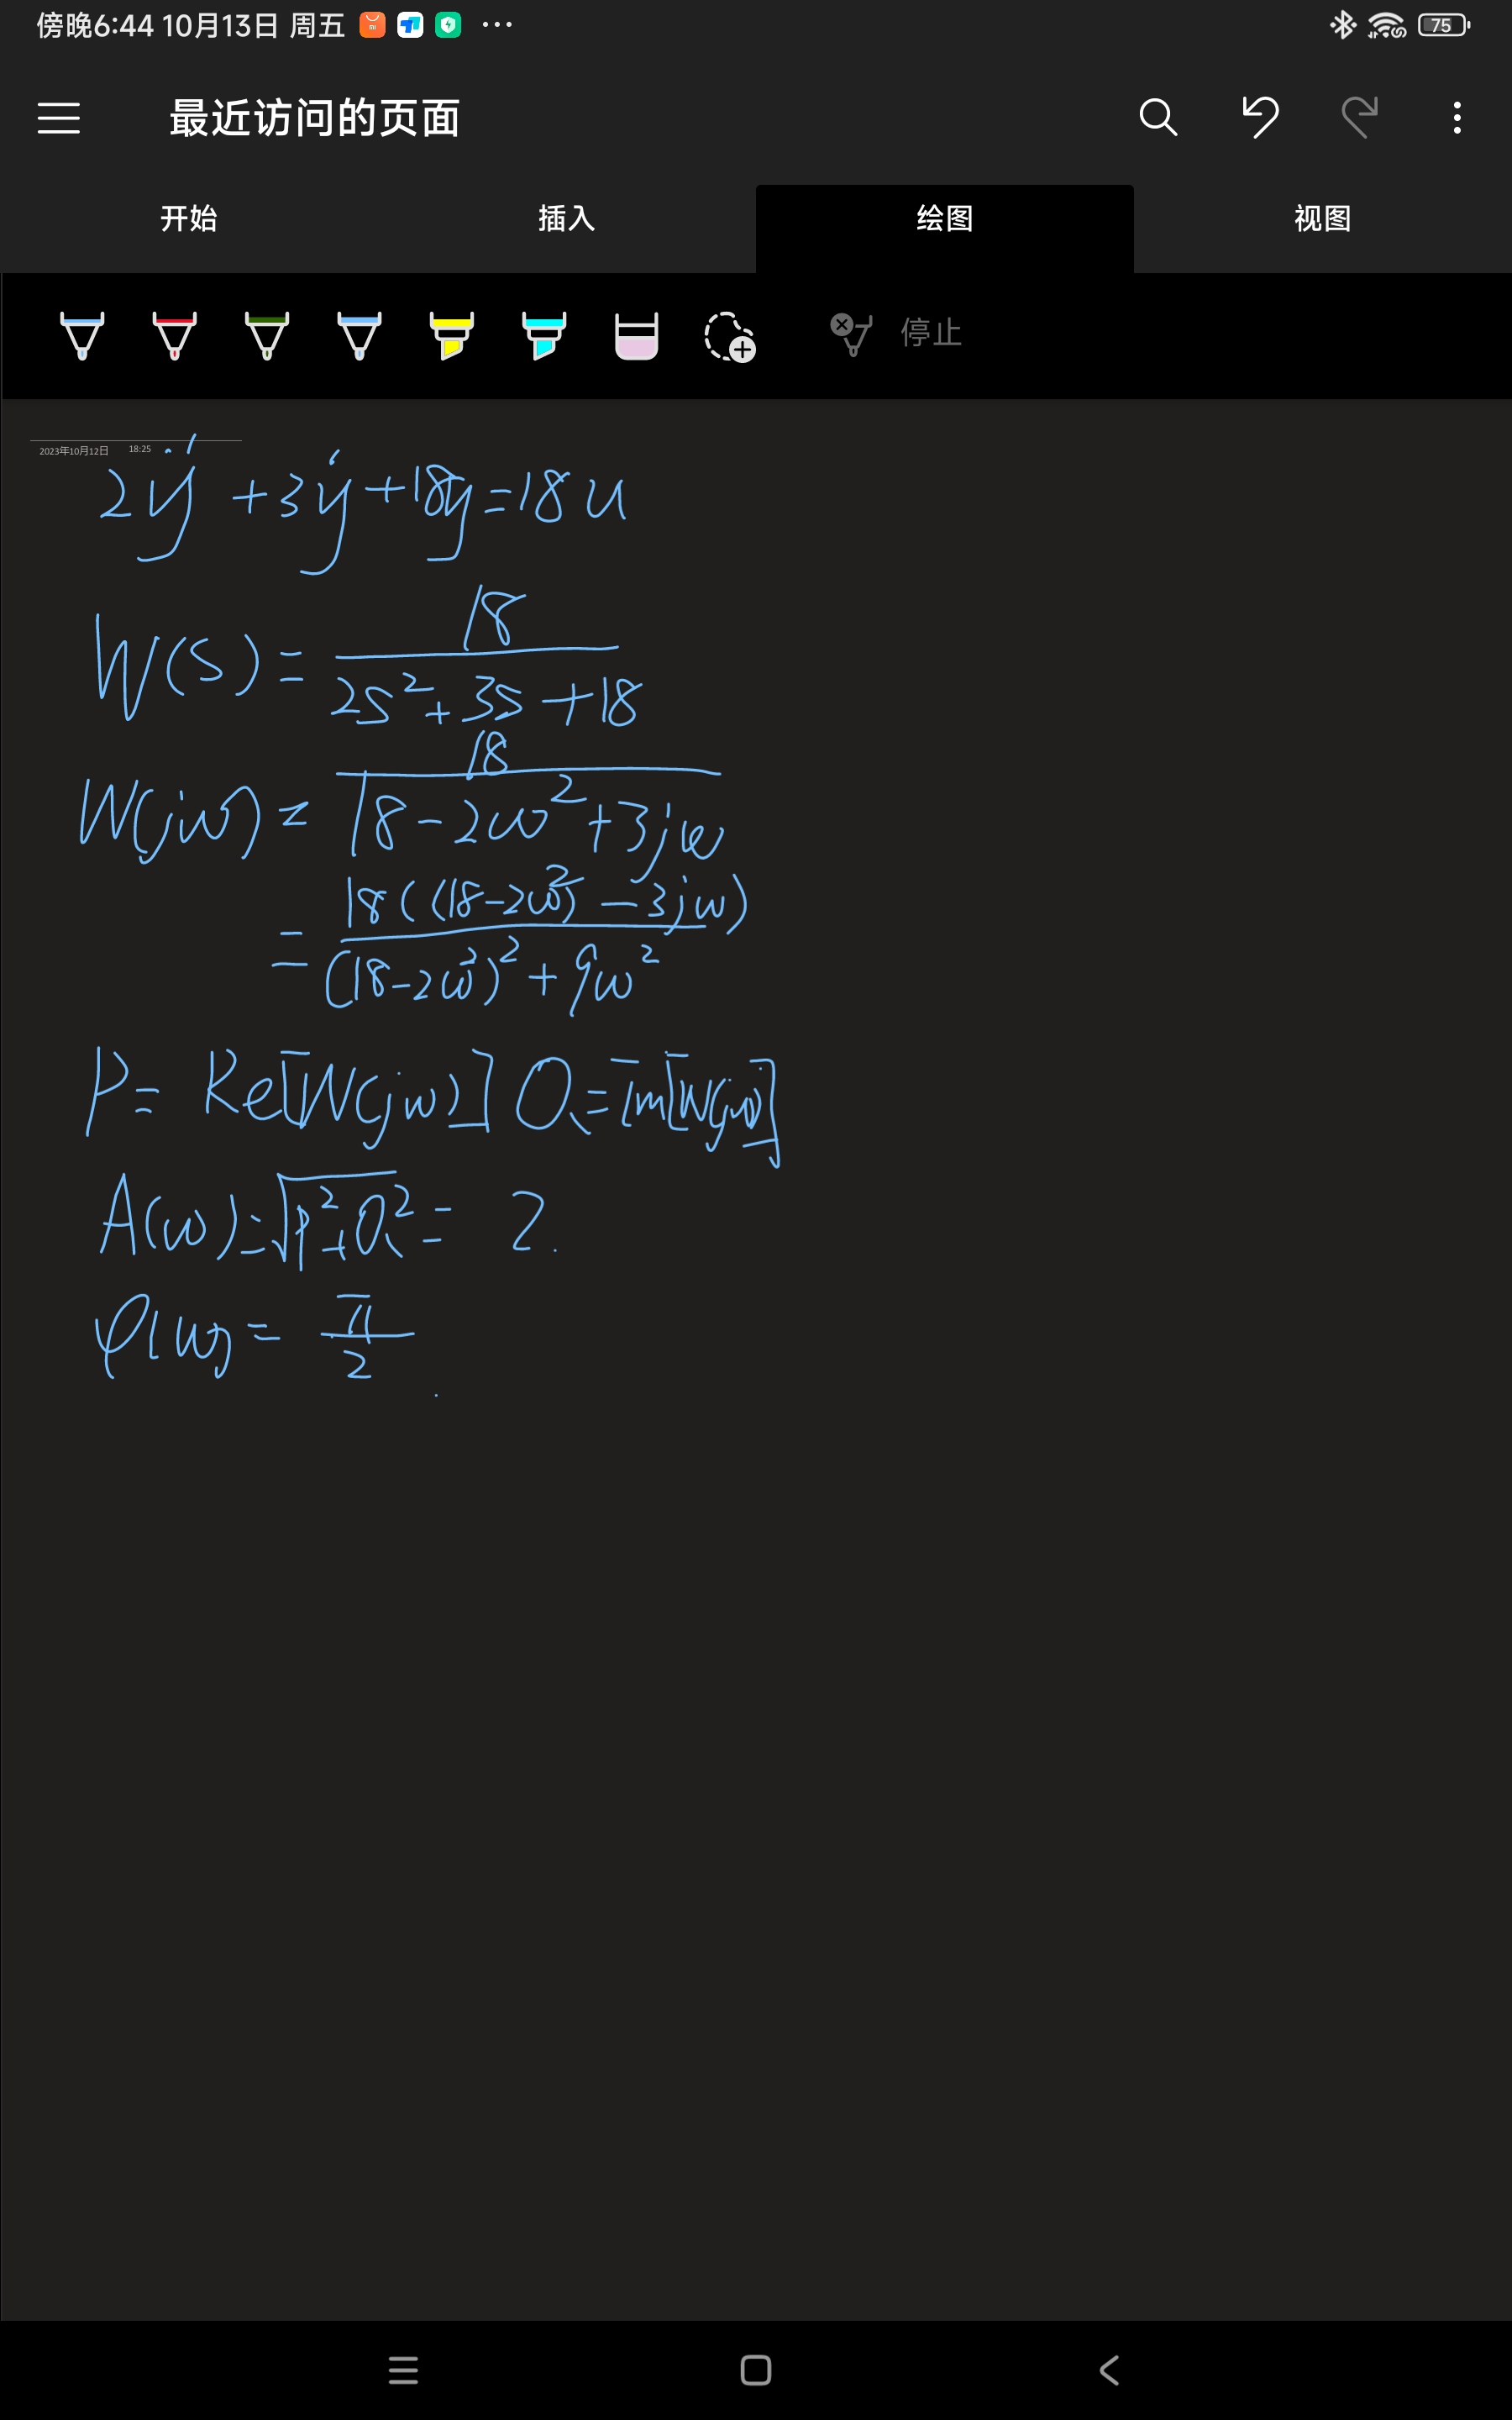 傍晚6:44 10月13日 周五 ...
75
最近访问的页面
开始 插入 绘图 视图
停止
2023年10月12日 18:25
2ÿ + 3ẏ + 18y = 18u
W(s) = 18 / (2s² + 3s + 18)
W(jω) = 18 / (18 - 2ω² + 3jω)
= 18((18 - 2ω²) - 3jω) / ((18 - 2ω²)² + 9ω²)
P = Re[W(jω)] Q = Im[W(jω)]
A(ω) = √(P² + Q²) = 2.
φ(ω) = π / 2 .